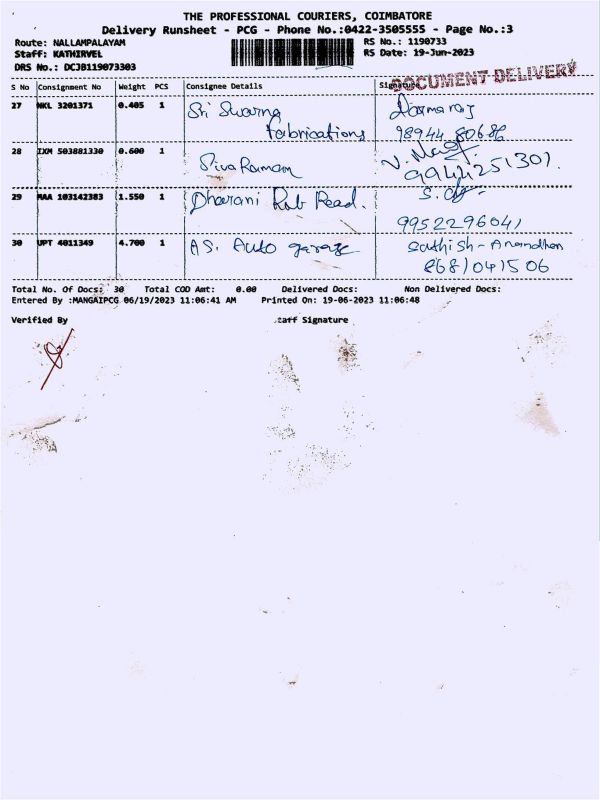 THE PROFESSIONAL COURIERS, COIMBATORE
Delivery Runsheet - PCG - Phone No.:0422-3505555 - Page No.:3
Route: NALLAMPALAYAM RS No.: 1190733
Staff: KATHIRVEL RS Date: 19-Jun-2023
DRS No.: DCJB119073303
DOCUMENT DELIVERY
S No Consignment No Weight PCS Consignee Details Signature
27 NKL 3201371 0.405 1 Sri Swarna Dharmaraj
Fabrications 98944 80686
28 IXM 503881330 0.600 1 Siva Raman
9944251301.
29 MAA 103142383 1.550 1 Dharani Rob Read.
9952296041
30 UPT 4011349 4.700 1 A S. Auto garage sathish-Anandhan
8681041506
Total No. Of Docs: 30 Total COD Amt: 0.00 Delivered Docs: Non Delivered Docs:
Entered By :MANGAIPCG 06/19/2023 11:06:41 AM Printed On: 19-06-2023 11:06:48
Verified By taff Signature